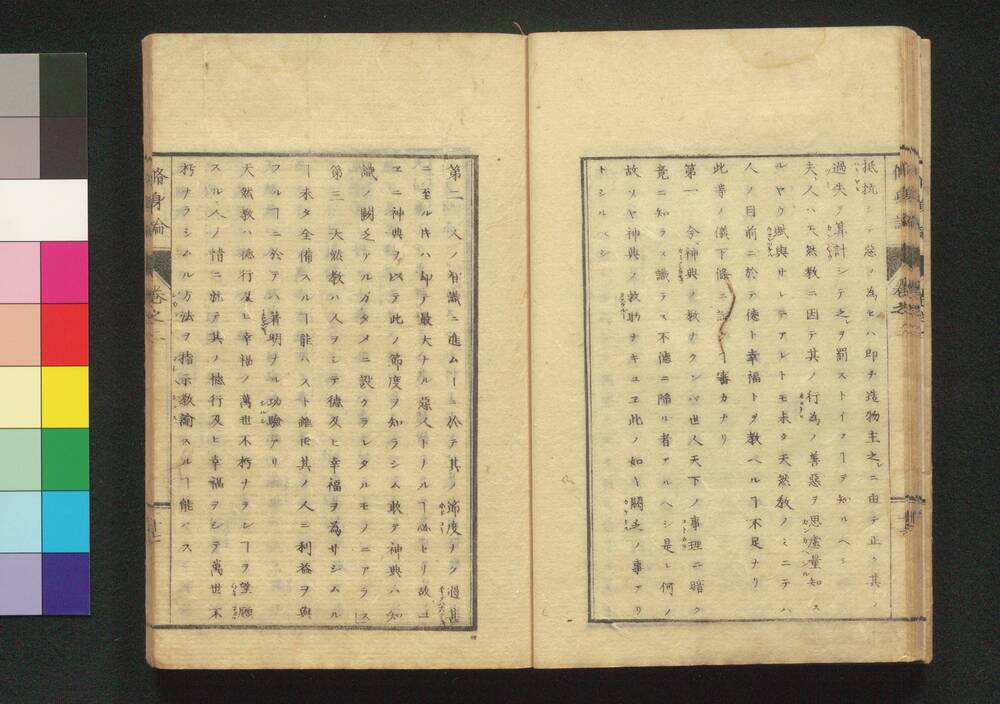 抵抗シテ惡ヲ為ヒハ即チ造物主之レニ由テ正ク其ノ
過失ヲ算計シテ之レヲ罰ストイフヿヲ知ルヘシ
夫レ人ハ天然教ニ因テ其ノ行為ノ善惡ヲ思慮量知ス
ルヤウ賦與サレテアレトモ未タ天然教ノミニテハ
人ノ目前ニ於テ德ト幸福トヲ教ヘルヿ不足ナリ
此等ノ儀下條ニ記シテ審カナリ
第一 今神典ノ教ナクンバ世人天下ノ事理ニ暗ク
竟ニ知ラス識ラスデ不德ニ陷ル者アルヘシ是レ何ノ
故ソヤ神典ノ救助ナキユヱ此ノ如キ闕乏ノ事アリ
トシルベシ
第二 人ノ智識ニ進ムヿニ於テ其ノ節度ナク過甚
ニ至ルドキハ却テ最大ナル惡人トナルヿ必セリ故ニユ
ヱニ神典ヲ以テ此ノ節度ヲ知ラシム敢テ神典ハ知
識ノ闕乏アルガタメニ設クラレタルモノニアラス
第三 天然教ハ人ヲシテ德及ヒ幸福ヲ為サシムル
ヿ未タ全備スルヿ能ハスト雖𪜈其ノ人ニ利益ヲ與
フルヿニ於テハ著明ナル功驗アリ
天然教ハ德行及ヒ幸福ノ萬世不朽ナランヿヲ望願
スル人ノ情ニ就テ其ノ德行及ヒ幸福ヲシテ萬世不
朽ナラシムル方法ヲ指示教諭スルヿ能ハス
脩身論
卷之一